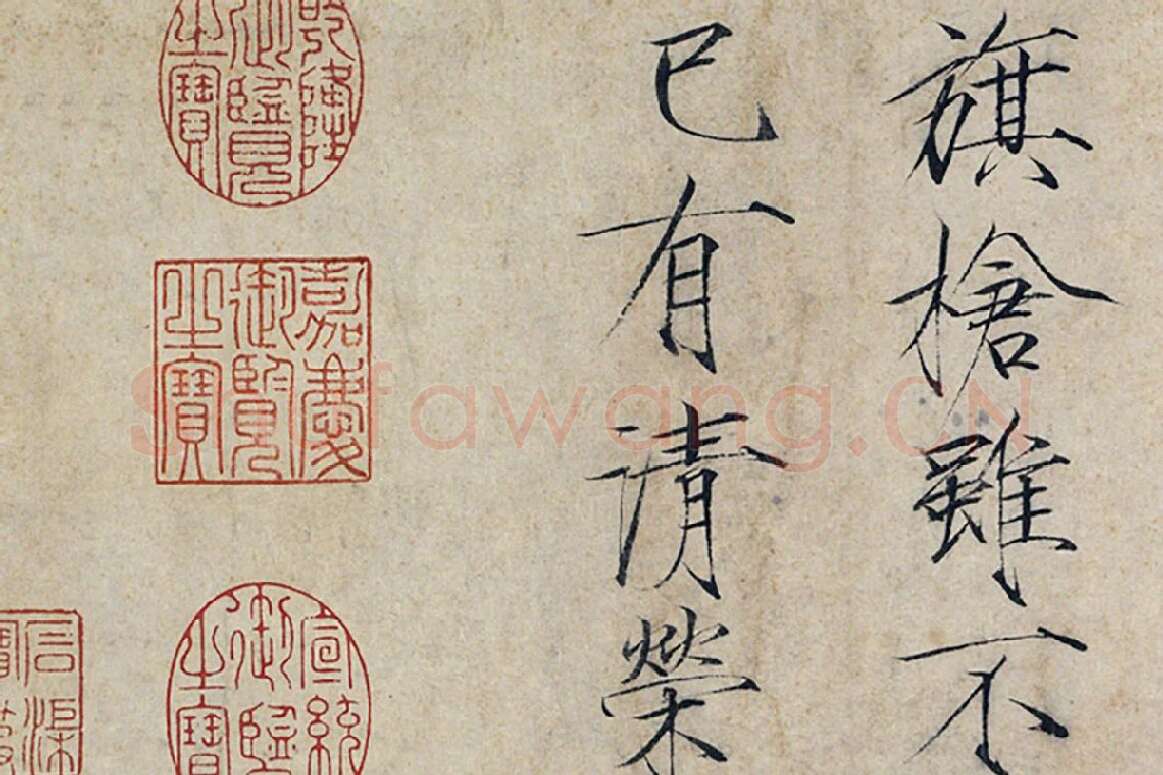 旗槍雖不
已有清榮
乾隆御覽之寶
嘉慶御覽之寶
宣統御覽之寶
Shufawang.CN